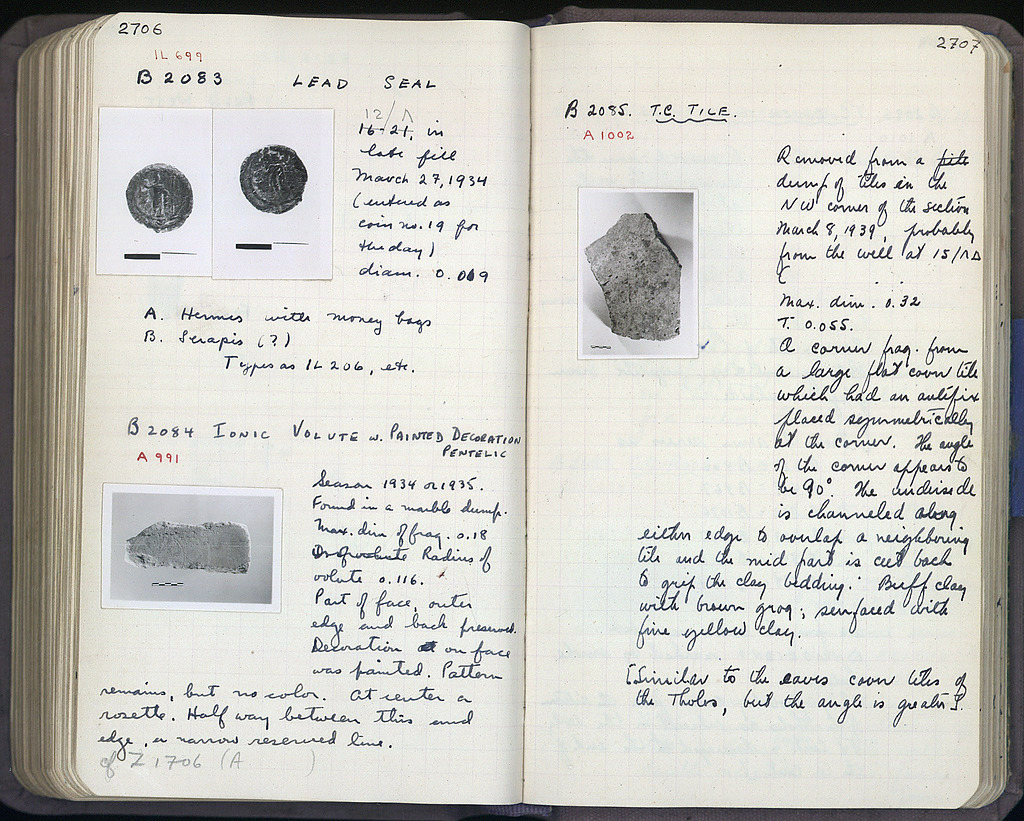 2706
IL 699
B 2083 LEAD SEAL
12/Λ
16-21, in
late fill
March 27, 1934
(entered as
coin no. 19 for
the day)
diam. 0.019
A. Hermes with money bags
B. Serapis (?)
Types as IL 206, etc.
B 2084 IONIC VOLUTE W. PAINTED DECORATION
PENTELIC
A 991
Season 1934 or 1935.
Found in a marble dump.
Max. dim of frag. 0.18
Radius of
volute 0.116.
Part of face, outer
edge and back preserved.
Decoration on face
was painted. Pattern
remains, but no color. At center a
rosette. Half way between this and
edge, a narrow reserved line.
cf Z 1706 (A )
2707
B 2085. T.C. TILE.
A 1002
Removed from a pile
dump of tiles in the
NW corner of the section
March 8, 1939, probably
from the well at 15/ΛΔ
(
Max. dim. 0.32
T. 0.055.
A corner frag. from
a large flat cover tile
which had an antefix
placed symmetrically
at the corner. The angle
of the corner appears to
be 90°. The underside
is channeled along
either edge to overlap a neighboring
tile and the mid part is cut back
to grip the clay bedding. Buff clay
with brown grog; surfaced with
fine yellow clay.
[Similar to the eaves cover tiles of
the Tholos, but the angle is greater].